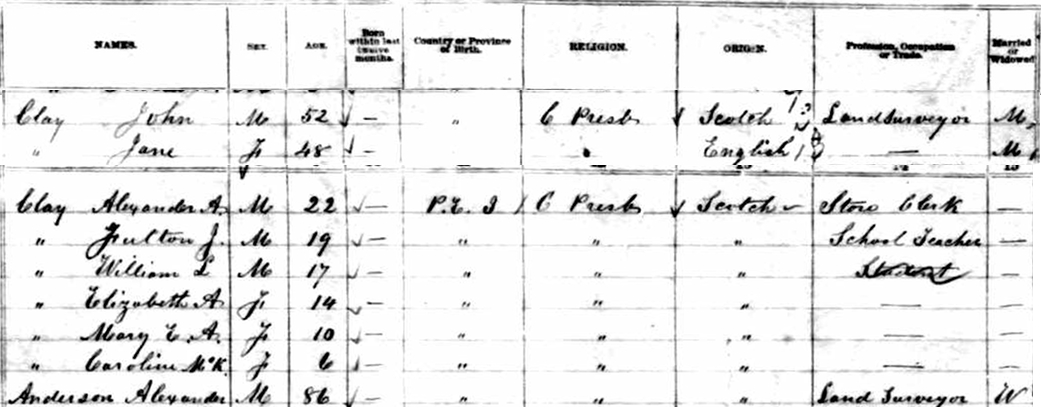 NAMES. SEX. AGE. Born within last twelve months. Country or Province of Birth. RELIGION. ORIGIN. Profession, Occupation or Trade. Married or Widowed
Clay John M 52 — " C Presb Scotch Land Surveyor M
" Jane F 48 — English — M
Clay Alexander A. M 22 — P.E.I C Presb Scotch Store Clerk —
" Fulton J. M 19 — " " " School Teacher —
" William L M 17 — " " " Student —
" Elizabeth A F 14 — " " " — —
" Mary E. A. F 10 — " " " — —
" Caroline McK. F 6 — " " " — —
Anderson Alexander M 86 " " " Land Surveyor W